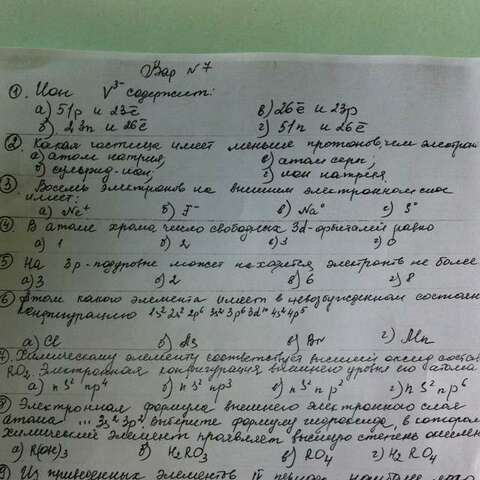 Вар N 7
1. Ион V³⁻ содержит:
а) 51p и 23ē в) 26ē и 23p
б) 23n и 26ē г) 51n и 26ē
2 Какая частица имеет меньше протонов, чем электрон
а) атом натрия, в) атом серы,
б) сульфид-ион; г) ион натрия
3 Восемь электронов на внешнем электронном слое
имеет:
а) Ne⁺ б) F⁻ в) Na⁰ г) S⁰
4 В атоме хрома число свободных 3d-орбиталей равно
а) 1 б) 2 в) 3 г) 0
5 На 3p-подуровне может находится электронов не более
а) 3 б) 2 в) 6 г) 8
6 Атом какого элемента имеет в невозбужденном состоян
конфигурацию 1s² 2s² 2p⁶ 3s² 3p⁶ 3d¹⁰ 4s² 4p⁵
а) Cl б) As в) Br г) Mn
7. Химическому элементу соответствует высший оксид состав
RO₂. Электронная конфигурация внешнего уровня его атома
а) ns² np⁴ б) ns² np³ в) ns² np² г) ns² np⁶
8 Электронная формула внешнего электронного слоя
атома ...3s² 3p² выберите формулу гидроксида, в котором
химический элемент проявляет высшую степень окислен
а) R(OH)₃ б) H₂RO₃ в) RO₄ г) H₂RO₄
9 Из приведенных элементов II периода наиболее